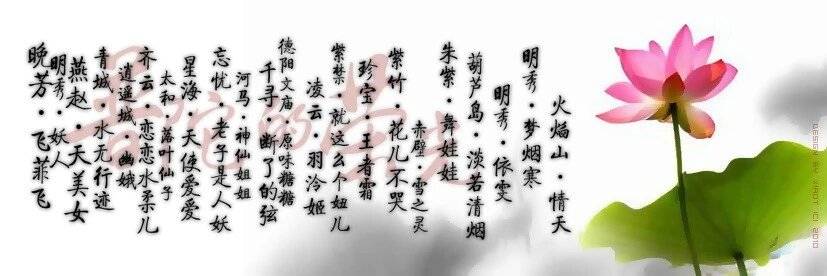 火焰山·情天
明秀·梦烟寒
明秀·依雯
葫芦岛·淡若清烟
朱紫·舞娃娃
赤壁·雪之灵
紫竹·花儿不哭
珍宝·王者霜
紫禁·就这么个妞儿
凌云·羽泠姬
德阳文庙·原味糖糖
千寻·断了的弦
河马·神仙姐姐
忘忧·老子是人妖
星海·天使爱爱
太和·落叶仙子
齐云·恋恋水柔儿
逍遥城·幽娥
青城·水无行迹
燕赵·天美女
明秀·妖人
晚芳·飞菲飞
普陀的荣光
DESIGN BY XIAOT ICI 2010